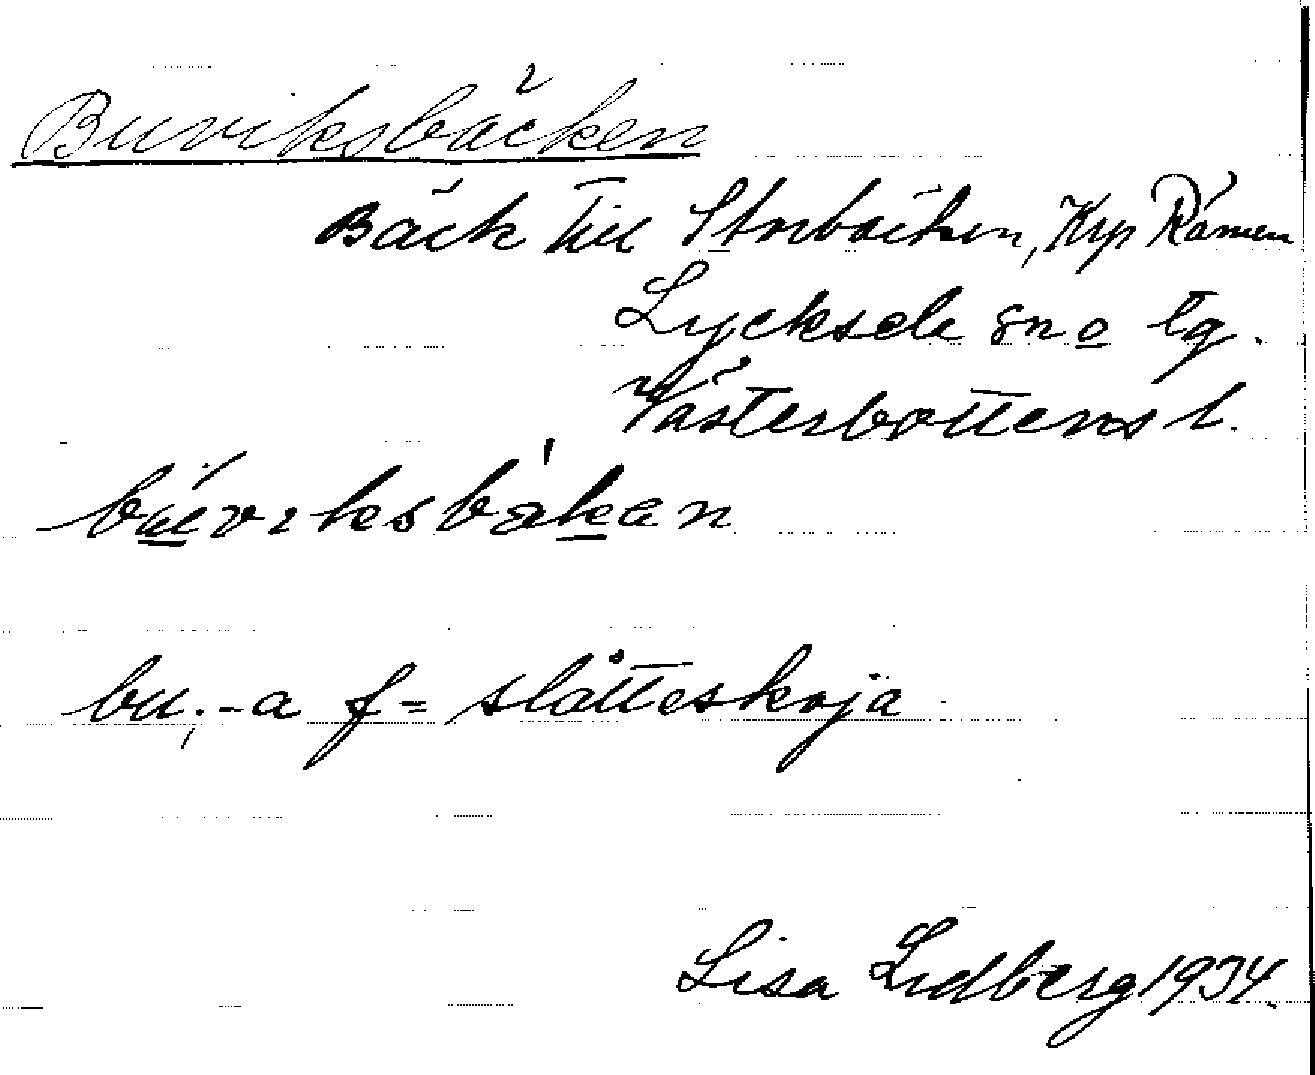 Buviksbäcken
Bäck till Storbäcken, Krp Råmen
Lycksele sn o tg.
Västerbottens l.
bu̲viksbäk̲an
bu, -a f = slåtteskoja
Lisa Lidberg 1934.